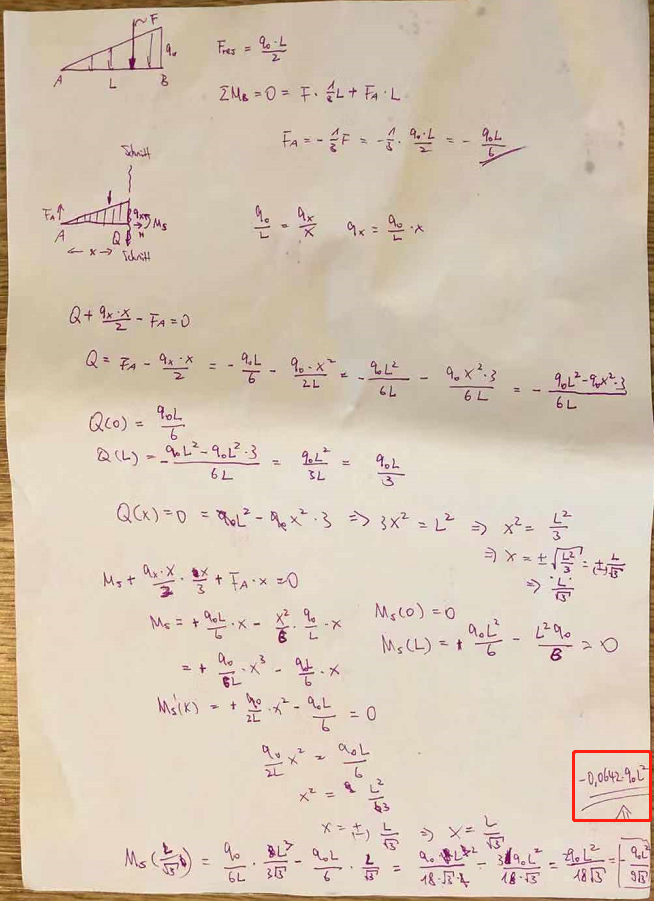 F
q₀
A L B
Fres = q₀·L/2
ΣM_B = 0 = F · 1/3 L + F_A · L
F_A = - 1/3 F = - 1/3 · q₀·L/2 = - q₀L/6
Schnitt
F_A qx M_S
A Q N
x Schnitt
q₀/L = qx/x qx = q₀/L · x
Q + qx·x/2 - F_A = 0
Q = F_A - qx·x/2 = - q₀L/6 - q₀·x²/2L = - q₀L²/6L - q₀x²·3/6L = - q₀L²-q₀x²·3/6L
Q(0) = q₀L/6
Q(L) = - q₀L²-q₀L²·3/6L = q₀L²/3L = q₀L/3
Q(x) = 0 = q₀L² - q₀x²·3 ⇒ 3x² = L² ⇒ x² = L²/3
⇒ x = ±√(L²/3) = (±) L/√3
⇒ L/√3
M_S + qx·x/2 · x/3 + F_A · x = 0
M_S(0) = 0
M_S = + q₀L/6 · x - x²/6 · q₀/L · x
M_S(L) = + q₀L²/6 - L²q₀/6 = 0
= + q₀/6L · x³ - q₀L/6 · x
M_S'(x) = + q₀/2L · x² - q₀L/6 = 0
q₀/2L x² = q₀L/6
x² = L²/3
-0,0642·q₀L²
x = ± L/√3 ⇒ x = L/√3
M_S(L/√3) = q₀/6L · L³/3√3 - q₀L/6 · L/√3 = q₀·L²/18·√3 - 3q₀L²/18·√3 = -2q₀L²/18√3 = - q₀L²/9√3